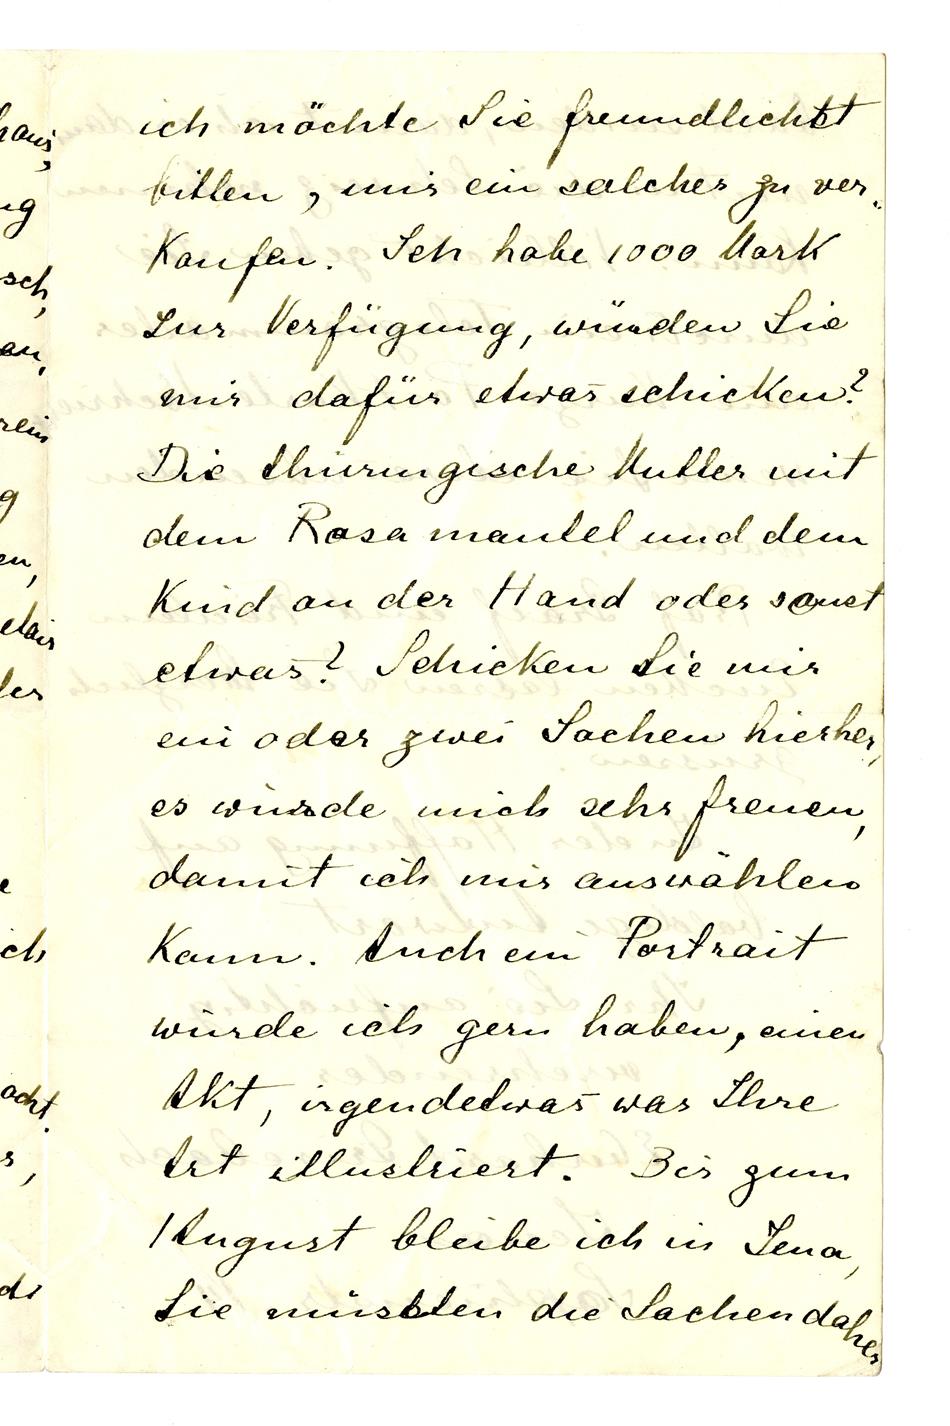 ich möchte Sie freundlichst
bitten, mir ein solches zu ver-
Kaufen. Ich habe 1000 Mark
zur Verfügung, würden Sie
mir dafür etwas schicken?
Die thüringische Mutter mit
dem Rosa mantel und dem
Kind an der Hand oder sonst
etwas? Schicken Sie mir
ein oder zwei Sachen hierher,
es würde mich sehr freuen,
damit ich mir auswählen
Kann. Auch ein Portrait
würde ich gern haben, einen
Akt, irgendetwas was Ihre
Art illustriert. Bis zum
1 August bleibe ich in Jena,
Sie müssten die Sachen daher